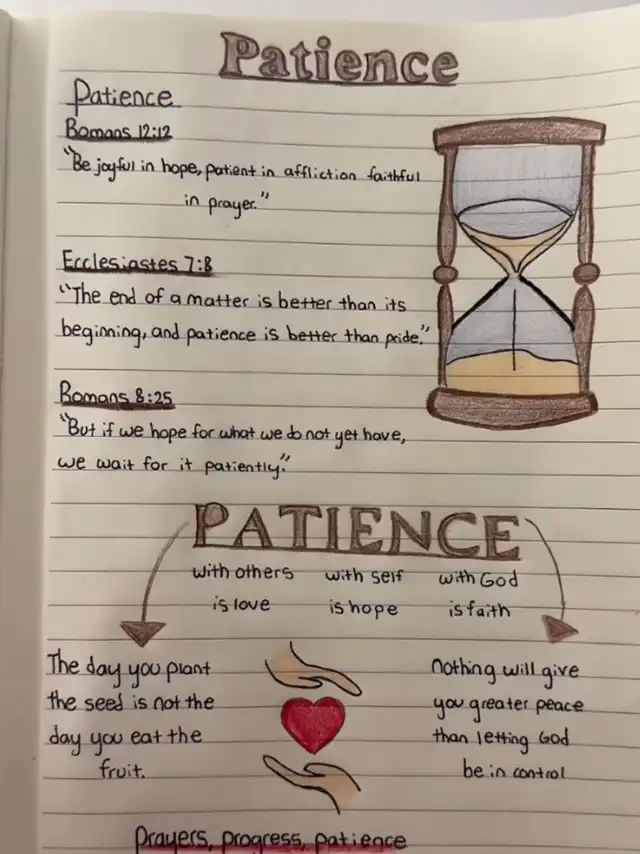 Patience
Patience
Romans 12:12
"Be joyful in hope, patient in affliction faithful
in prayer."
Ecclesiastes 7:8
"The end of a matter is better than its
beginning, and patience is better than pride."
Romans 8:25
"But if we hope for what we do not yet have,
we wait for it patiently."
PATIENCE
with others
is love
with self
is hope
with God
is faith
The day you plant
the seed is not the
day you eat the
fruit.
nothing will give
you greater peace
than letting God
be in control
Prayers, progress, patience